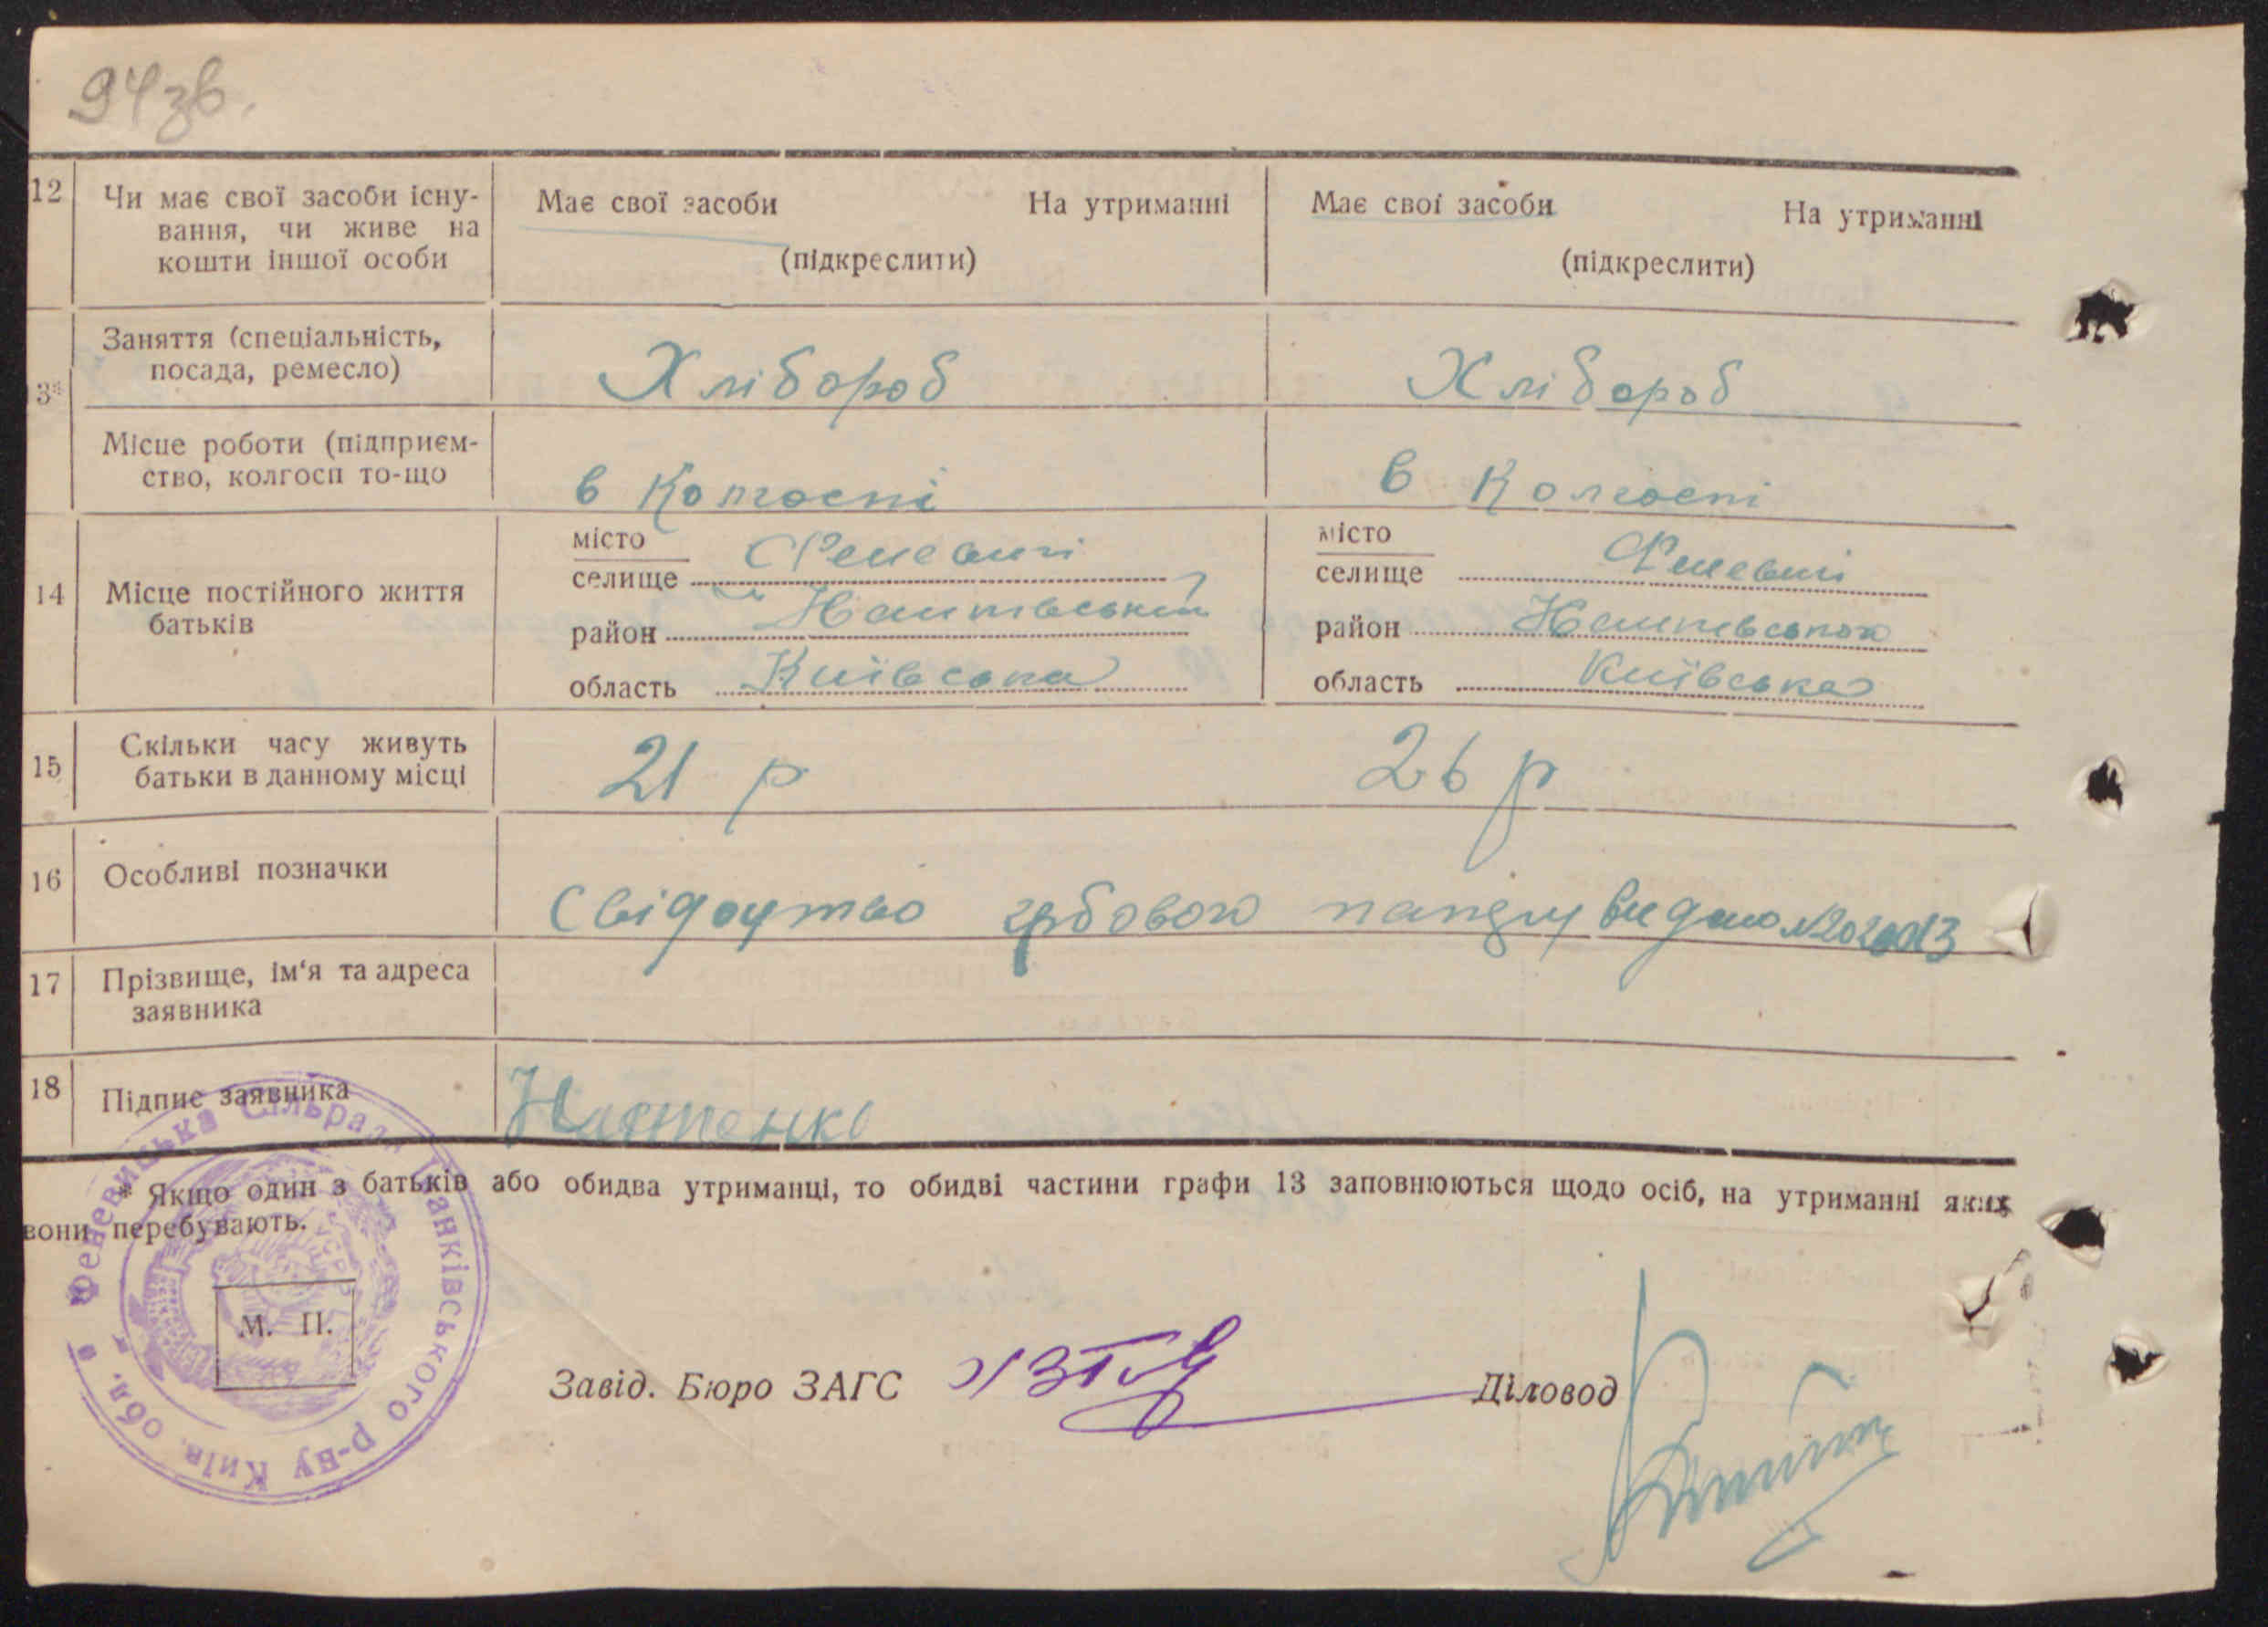 94зв.
12 Чи має свої засоби існу-
вання, чи живе на
кошти іншої особи
Має свої засоби На утриманні
(підкреслити)
Має свої засоби На утриманні
(підкреслити)
13*
Заняття (спеціальність,
посада, ремесло)
Хлібороб
Хлібороб
Місце роботи (підприєм-
ство, колгосп то-що
в Колгоспі
в Колгоспі
14 Місце постійного життя
батьків
місто
селище Феневичі
район
область Київська
місто
селище Феневичі
район
область Київська
15 Скільки часу живуть
батьки в данному місці
21 р
26 р
16 Особливі позначки
Свідоцтво гербового паперу видано
17 Прізвище, ім‘я та адреса
заявника
18 Підпис заявника
* Якщо один з батьків або обидва утриманці, то обидві частини графи 13 заповнюються щодо осіб, на утриманні яких
вони перебувають.
Феневицька Сільрада Іванківського р-ну Київ. обл.
УСРР
М. П.
Завід. Бюро ЗАГС
Діловод